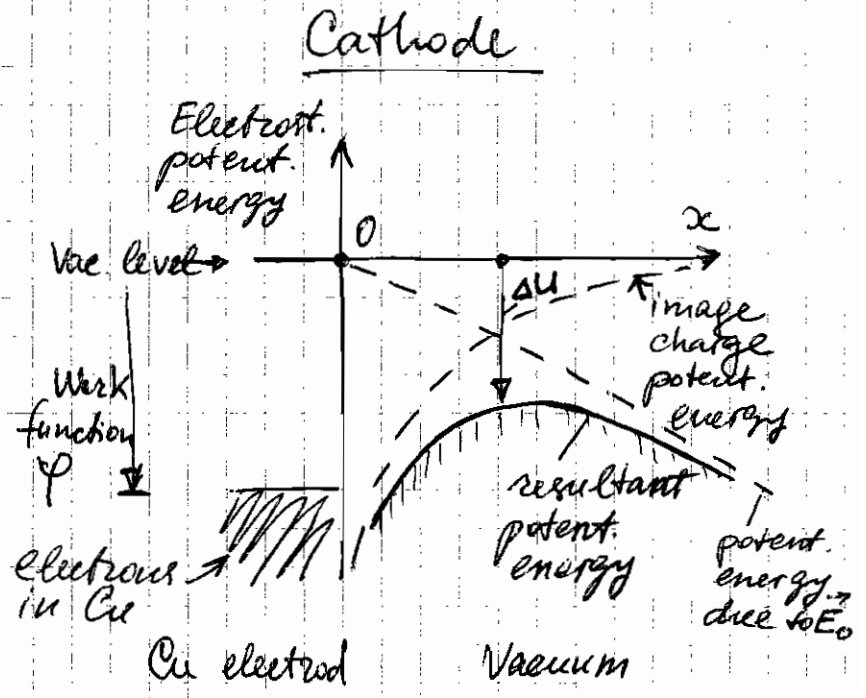 Cathode
Electrost.
potent.
energy
O
x
Vac level
ΔU
image
charge
potent.
energy
Work
function
φ
resultant
potent.
energy
potent.
energy
due to E₀
electrons
in Cu
Cu electrod
Vacuum